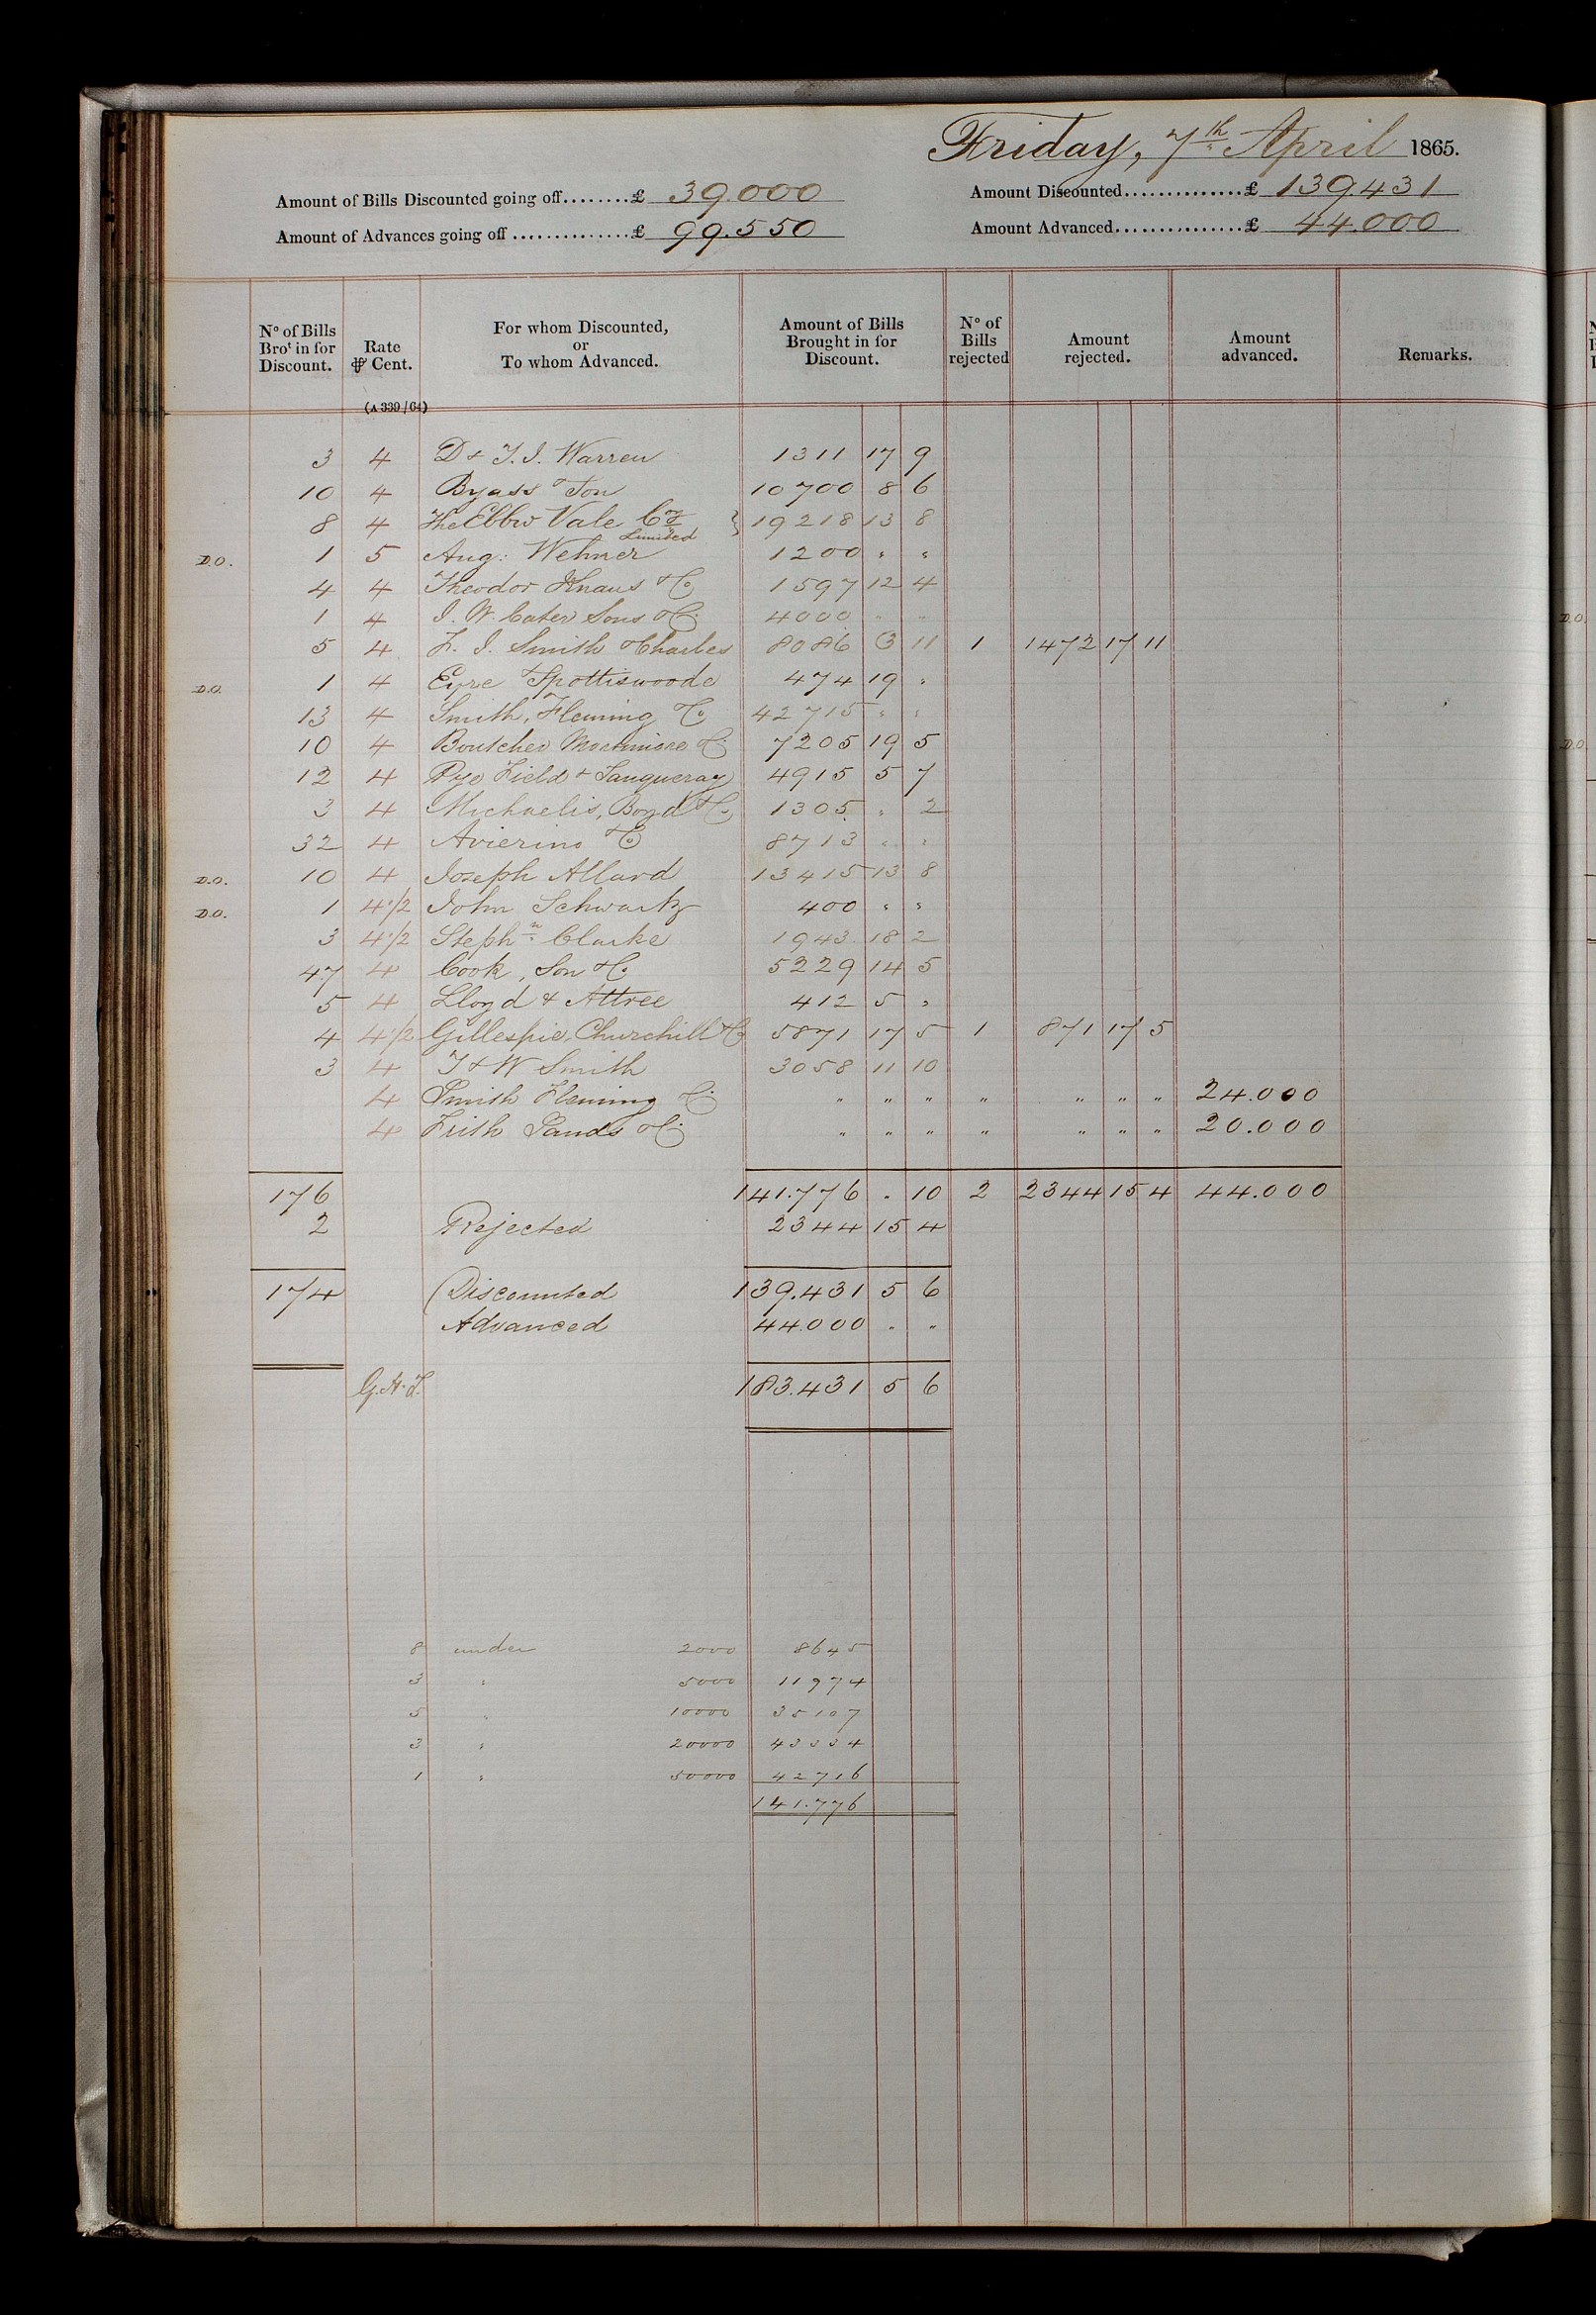 Friday, 7th April 1865.
Amount of Bills Discounted going off........£ 39.000 Amount Discounted..............£ 139.431
Amount of Advances going off ...............£ 99.550 Amount Advanced................£ 44.000
No of Bills Brot in for Discount. Rate ⅌ Cent. For whom Discounted, or To whom Advanced. Amount of Bills Brought in for Discount. No of Bills rejected Amount rejected. Amount advanced. Remarks.
(A 339/64)
3 4 D & T. I. Warren 1311 17 9
10 4 Byass & Son 10700 8 6
8 4 The Ebbw Vale Coy Limited } 19218 13 8
D.O. 1 5 Aug: Wehner 1200 " "
4 4 Theodor Knaus & Co 1597 12 4
1 4 J. W. Cater Sons & Co 4000 " "
5 4 F. J. Smith & Charles 8086 3 11 1 1472 17 11
D.O. 1 4 Eyre & Spottiswoode 474 19 "
13 4 Smith, Fleming & Co 42715 " "
10 4 Boutcher Mortimore & Co 7205 19 5
12 4 Pye Field & Tanqueray 4915 5 7
3 4 Michaelis, Boyd & Co 1305 " 2
32 4 Avierino & Co 8713 " "
D.O. 10 4 Joseph Allard 13415 13 8
D.O. 1 4 1/2 John Schwartz 400 " "
3 4 1/2 Stephn Clarke 1943 18 2
47 4 Cook, Son & Co 5229 14 5
5 4 Lloyd & Attree 412 5 "
4 4 1/2 Gillespie, Churchill & Co 5871 17 5 1 871 17 5
3 4 T & W Smith 3058 11 10
4 Smith Fleming & Co " " " " " " " 24.000
4 Frith Sands & Co " " " " " " " 20.000
176 141.776 . 10 2 2344 15 4 44.000
2 Rejected 2344 15 4
174 Discounted 139.431 5 6
Advanced 44.000 . "
G.H.T. 183.431 5 6
8 under 2000 8645
3 " 5000 11974
5 " 10000 35107
3 " 20000 43334
1 " 50000 42716
141.776